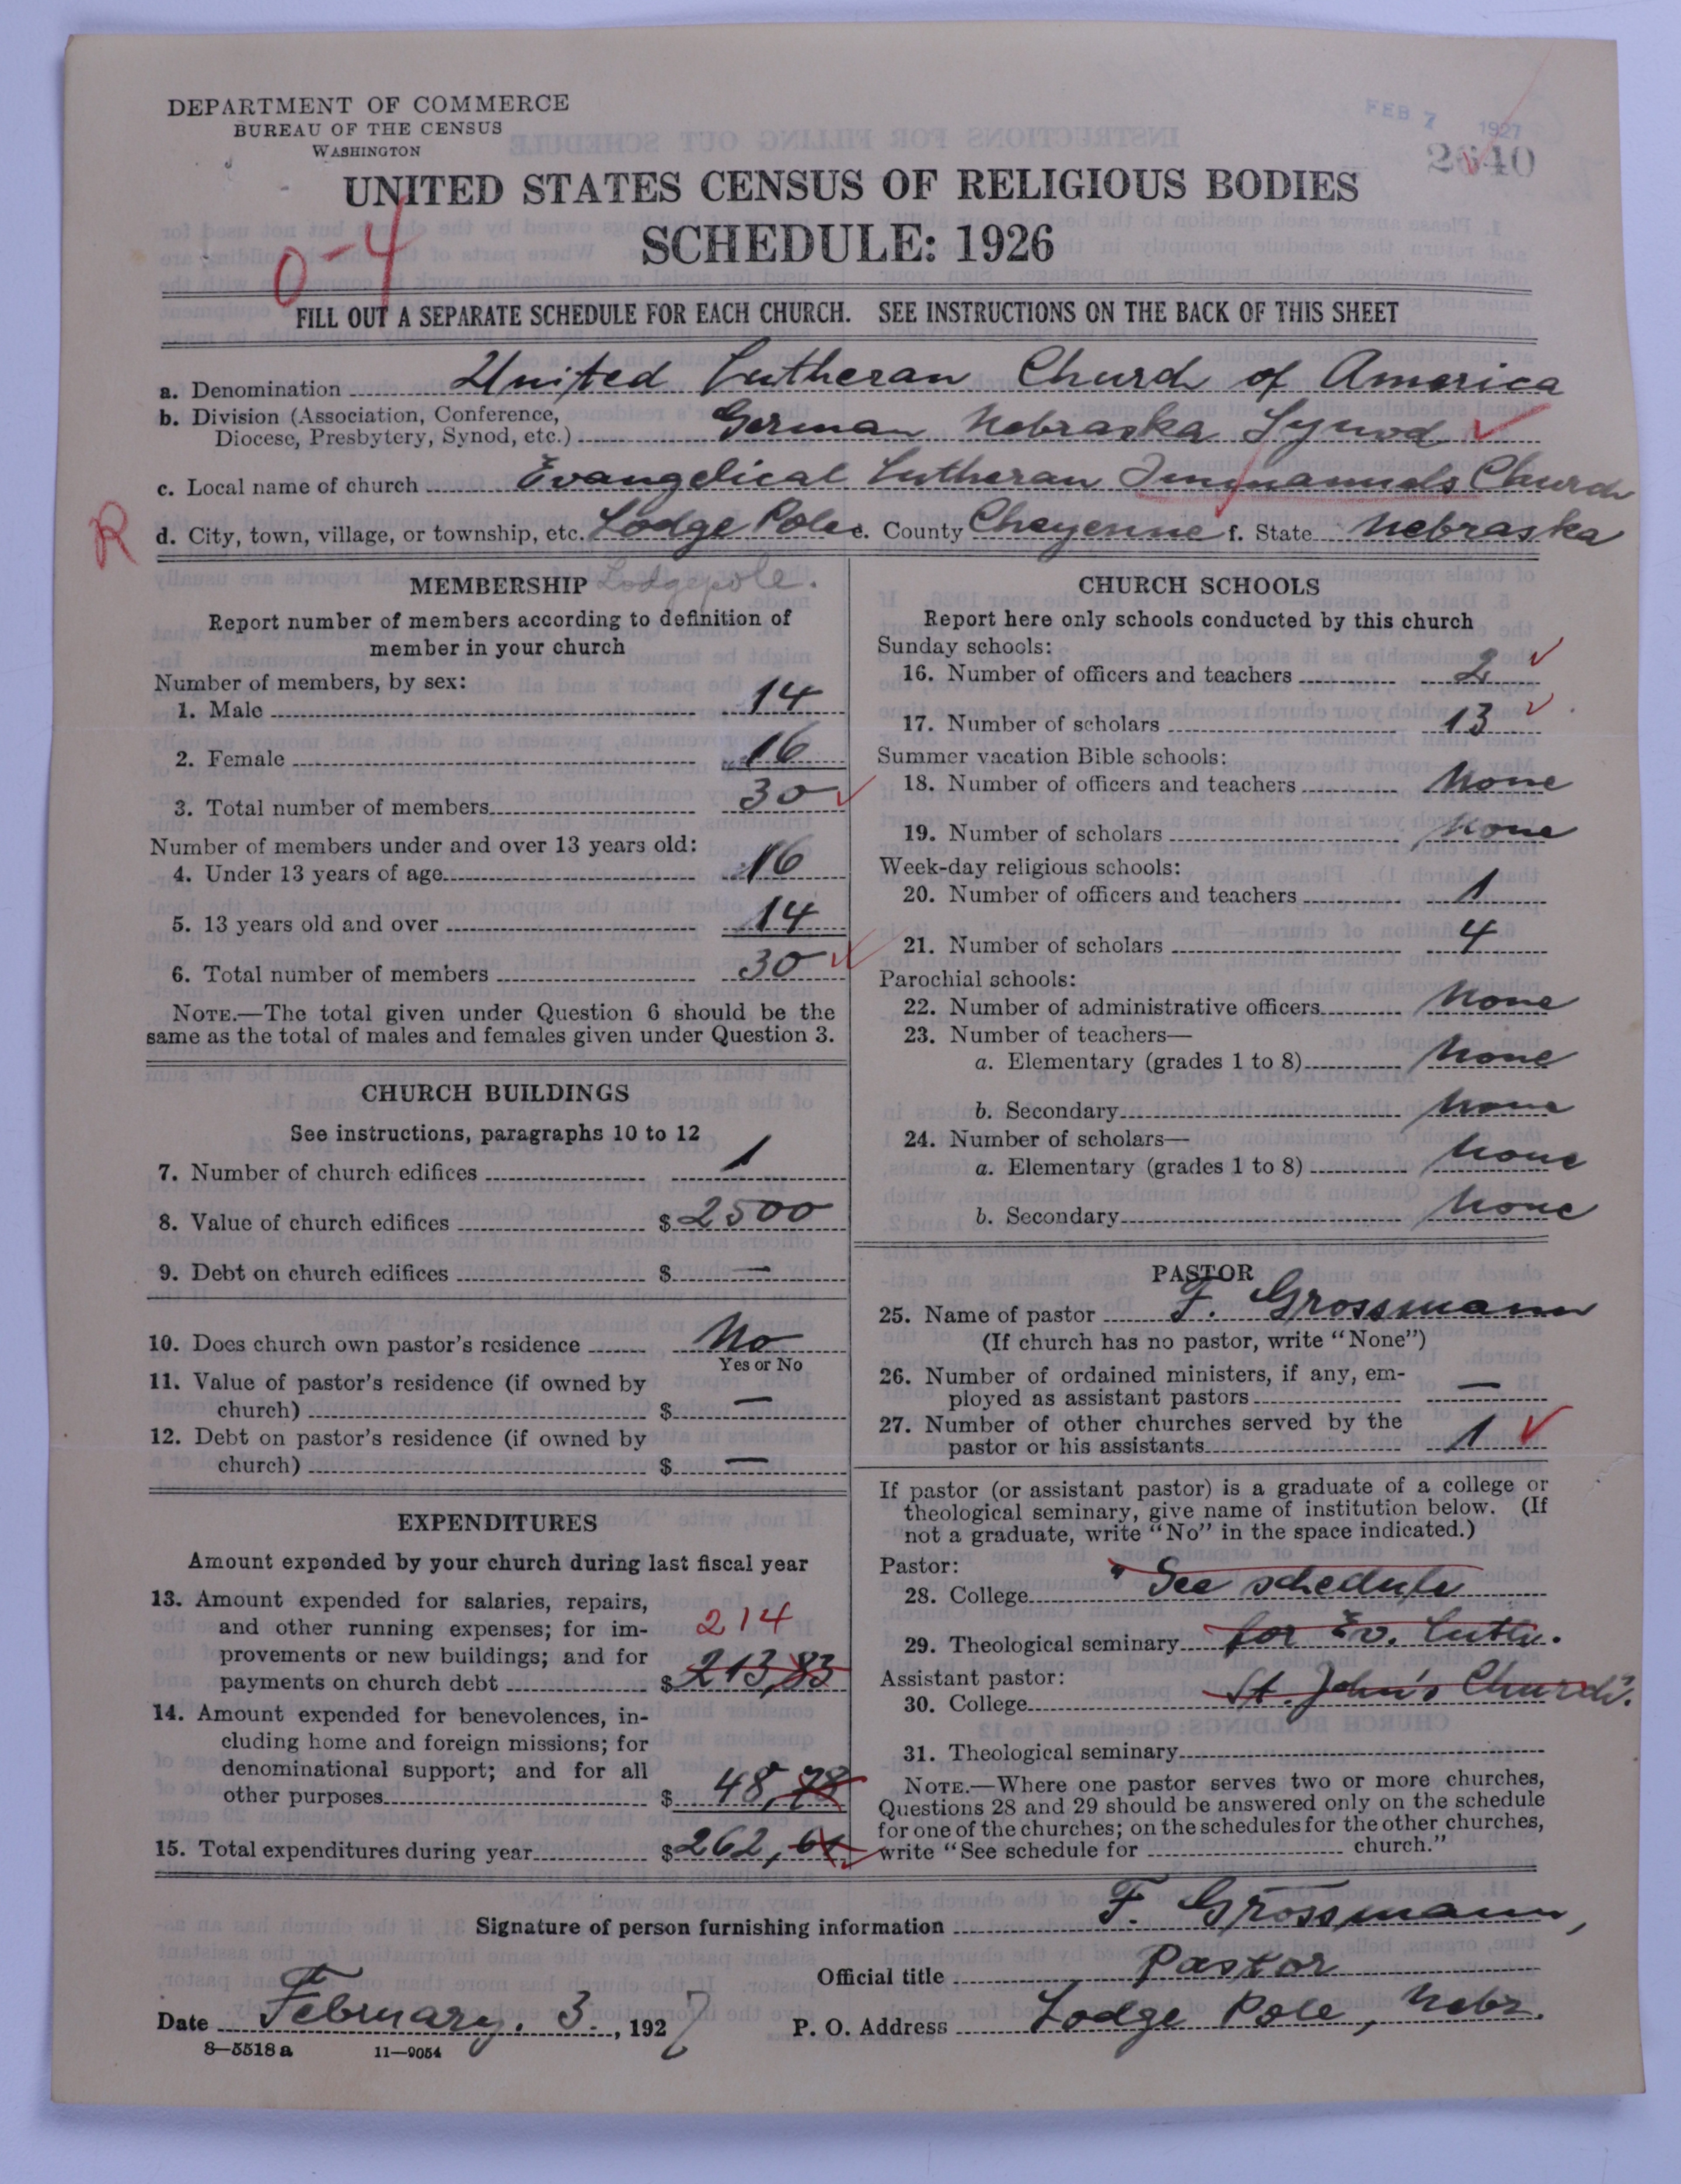 DEPARTMENT OF COMMERCE
BUREAU OF THE CENSUS
WASHINGTON
FEB 7 1927
UNITED STATES CENSUS OF RELIGIOUS BODIES
SCHEDULE: 1926
0-4
FILL OUT A SEPARATE SCHEDULE FOR EACH CHURCH. SEE INSTRUCTIONS ON THE BACK OF THIS SHEET
a. Denomination United Lutheran Church of America
b. Division (Association, Conference,
Diocese, Presbytery, Synod, etc.) German Nebraska Synod ✓
c. Local name of church Evangelical Lutheran Immanuels Church
R
d. City, town, village, or township, etc. Lodge Pole e. County Cheyenne f. State Nebraska
MEMBERSHIP Lodgepole.
Report number of members according to definition of
member in your church
Number of members, by sex:
1. Male 14
2. Female 16
3. Total number of members 30 ✓
Number of members under and over 13 years old:
4. Under 13 years of age 16
5. 13 years old and over 14
6. Total number of members 30 ✓
NOTE.—The total given under Question 6 should be the
same as the total of males and females given under Question 3.
CHURCH BUILDINGS
See instructions, paragraphs 10 to 12
7. Number of church edifices 1
8. Value of church edifices $ 2500
9. Debt on church edifices $ —
10. Does church own pastor's residence No
Yes or No
11. Value of pastor's residence (if owned by
church) $ —
12. Debt on pastor's residence (if owned by
church) $ —
EXPENDITURES
Amount expended by your church during last fiscal year
13. Amount expended for salaries, repairs,
and other running expenses; for im- 214
provements or new buildings; and for
payments on church debt $ 213,83
14. Amount expended for benevolences, in-
cluding home and foreign missions; for
denominational support; and for all
other purposes $ 48,78
15. Total expenditures during year $ 262,61 ✓
CHURCH SCHOOLS
Report here only schools conducted by this church
Sunday schools:
16. Number of officers and teachers 2 ✓
17. Number of scholars 13 ✓
Summer vacation Bible schools:
18. Number of officers and teachers None
19. Number of scholars None
Week-day religious schools:
20. Number of officers and teachers 1
21. Number of scholars 4
Parochial schools:
22. Number of administrative officers None
23. Number of teachers—
a. Elementary (grades 1 to 8) None
b. Secondary None
24. Number of scholars—
a. Elementary (grades 1 to 8) None
b. Secondary None
PASTOR
25. Name of pastor F. Grossmann
(If church has no pastor, write "None")
26. Number of ordained ministers, if any, em-
ployed as assistant pastors —
27. Number of other churches served by the
pastor or his assistants 1 ✓
If pastor (or assistant pastor) is a graduate of a college or
theological seminary, give name of institution below. (If
not a graduate, write "No" in the space indicated.)
Pastor:
28. College "See schedule
29. Theological seminary for Ev. Luth.
Assistant pastor:
30. College St. John's Church".
31. Theological seminary
NOTE.—Where one pastor serves two or more churches,
Questions 28 and 29 should be answered only on the schedule
for one of the churches; on the schedules for the other churches,
write "See schedule for church."
Signature of person furnishing information F. Grossmann,
Official title Pastor
Date February. 3., 1927 P. O. Address Lodge Pole, Nebr.
8—5518 a 11—9054